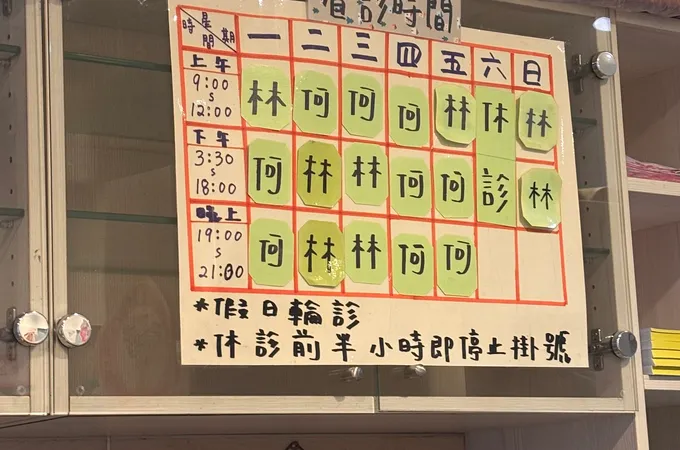 看診時間
時間 星期 一 二 三 四 五 六 日
上午 9:00 s 12:00 林 何 何 何 林 休 林
下午 3:30 s 18:00 何 林 林 何 何 診 林
晚上 19:00 s 21:00 何 林 林 何 何
*假日輪診
*休診前半小時即停止掛號